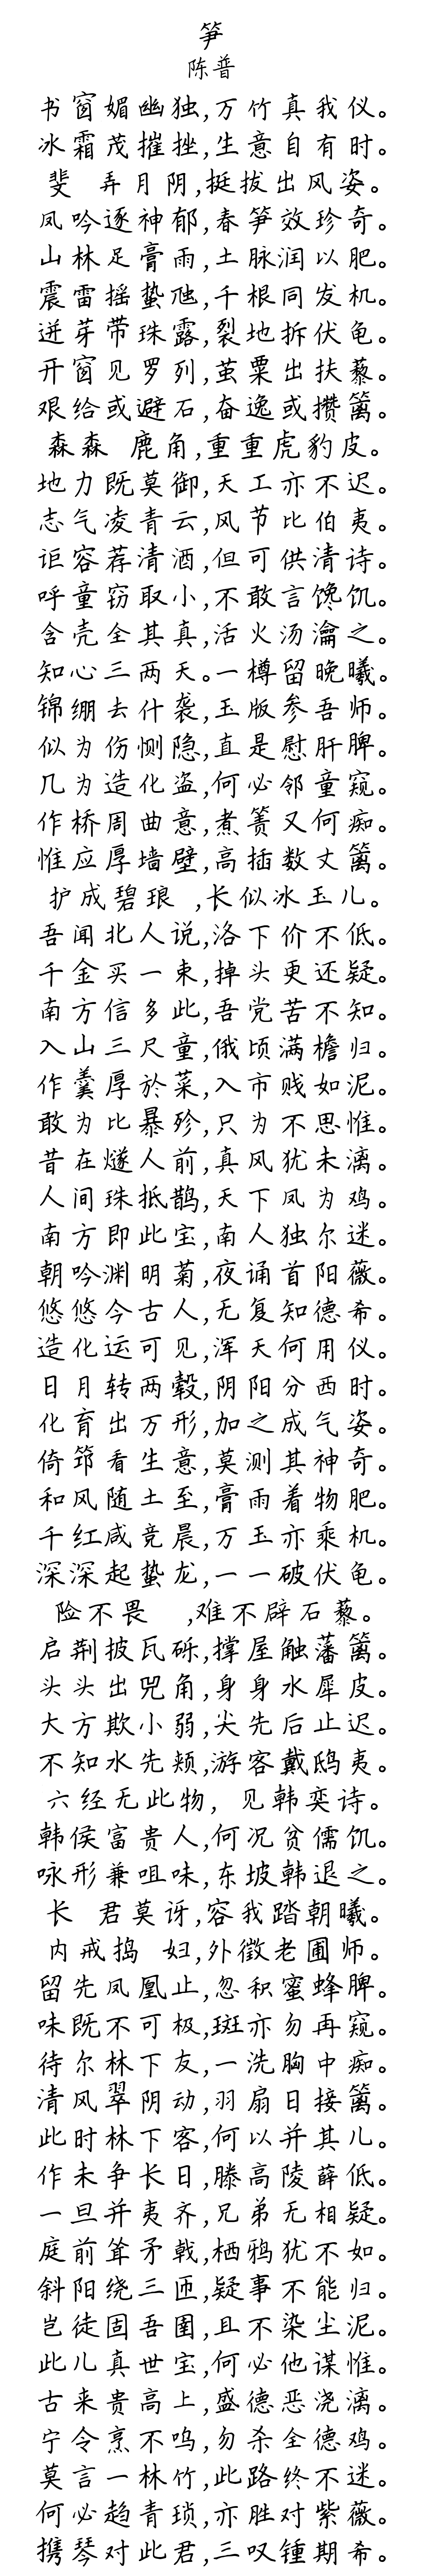 笋
陈普
书窗媚幽独,万竹真我仪。
冰霜茂摧挫,生意自有时。
斐 弄月阴,挺拔出风姿。
凤吟逐神郁,春笋效珍奇。
山林足膏雨,土脉润以肥。
震雷摇蛰虺,千根同发机。
迸芽带珠露,裂地拆伏龟。
开窗见罗列,茧粟出扶藜。
艰给或避石,奋逸或攒篱。
森森 鹿角,重重虎豹皮。
地力既莫御,天工亦不迟。
志气凌青云,风节比伯夷。
讵容荐清酒,但可供清诗。
呼童窃取小,不敢言馋饥。
含壳全其真,活火汤瀹之。
知心三两天。一樽留晚曦。
锦绷去什袭,玉版参吾师。
似为伤恻隐,直是慰肝脾。
几为造化盗,何必邻童窥。
作桥周曲意,煮箦又何痴。
惟应厚墙壁,高插数丈篱。
护成碧琅 ,长似冰玉儿。
吾闻北人说,洛下价不低。
千金买一束,掉头更还疑。
南方信多此,吾党苦不知。
入山三尺童,俄顷满檐归。
作羹厚於菜,入市贱如泥。
敢为比暴殄,只为不思惟。
昔在燧人前,真风犹未漓。
人间珠抵鹊,天下凤为鸡。
南方即此宝,南人独尔迷。
朝吟渊明菊,夜诵首阳薇。
悠悠今古人,无复知德希。
造化运可见,浑天何用仪。
日月转两毂,阴阳分西时。
化育出万形,加之成气姿。
倚筇看生意,莫测其神奇。
和风随土至,膏雨着物肥。
千红咸竞晨,万玉亦乘机。
深深起蛰龙,一一破伏龟。
险不畏 ,难不辟石藜。
启荆披瓦砾,撑屋触藩篱。
头头出兕角,身身水犀皮。
大方欺小弱,尖先后止迟。
不知水先颊,游客戴鸱夷。
六经无此物, 见韩奕诗。
韩侯富贵人,何况贫儒饥。
咏形兼咀味,东坡韩退之。
长 君莫讶,容我踏朝曦。
内戒捣 妇,外徵老圃师。
留先凤凰止,忽积蜜蜂脾。
味既不可极,斑亦勿再窥。
待尔林下友,一洗胸中痴。
清风翠阴动,羽扇日接篱。
此时林下客,何以并其儿。
作未争长日,滕高陵薛低。
一旦并夷齐,兄弟无相疑。
庭前耸矛戟,栖鸦犹不如。
斜阳绕三匝,疑事不能归。
岂徒固吾圉,且不染尘泥。
此儿真世宝,何必他谋惟。
古来贵高上,盛德恶浇漓。
宁令烹不鸣,勿杀全德鸡。
莫言一林竹,此路终不迷。
何必趋青琐,亦胜对紫薇。
携琴对此君,三叹锺期希。